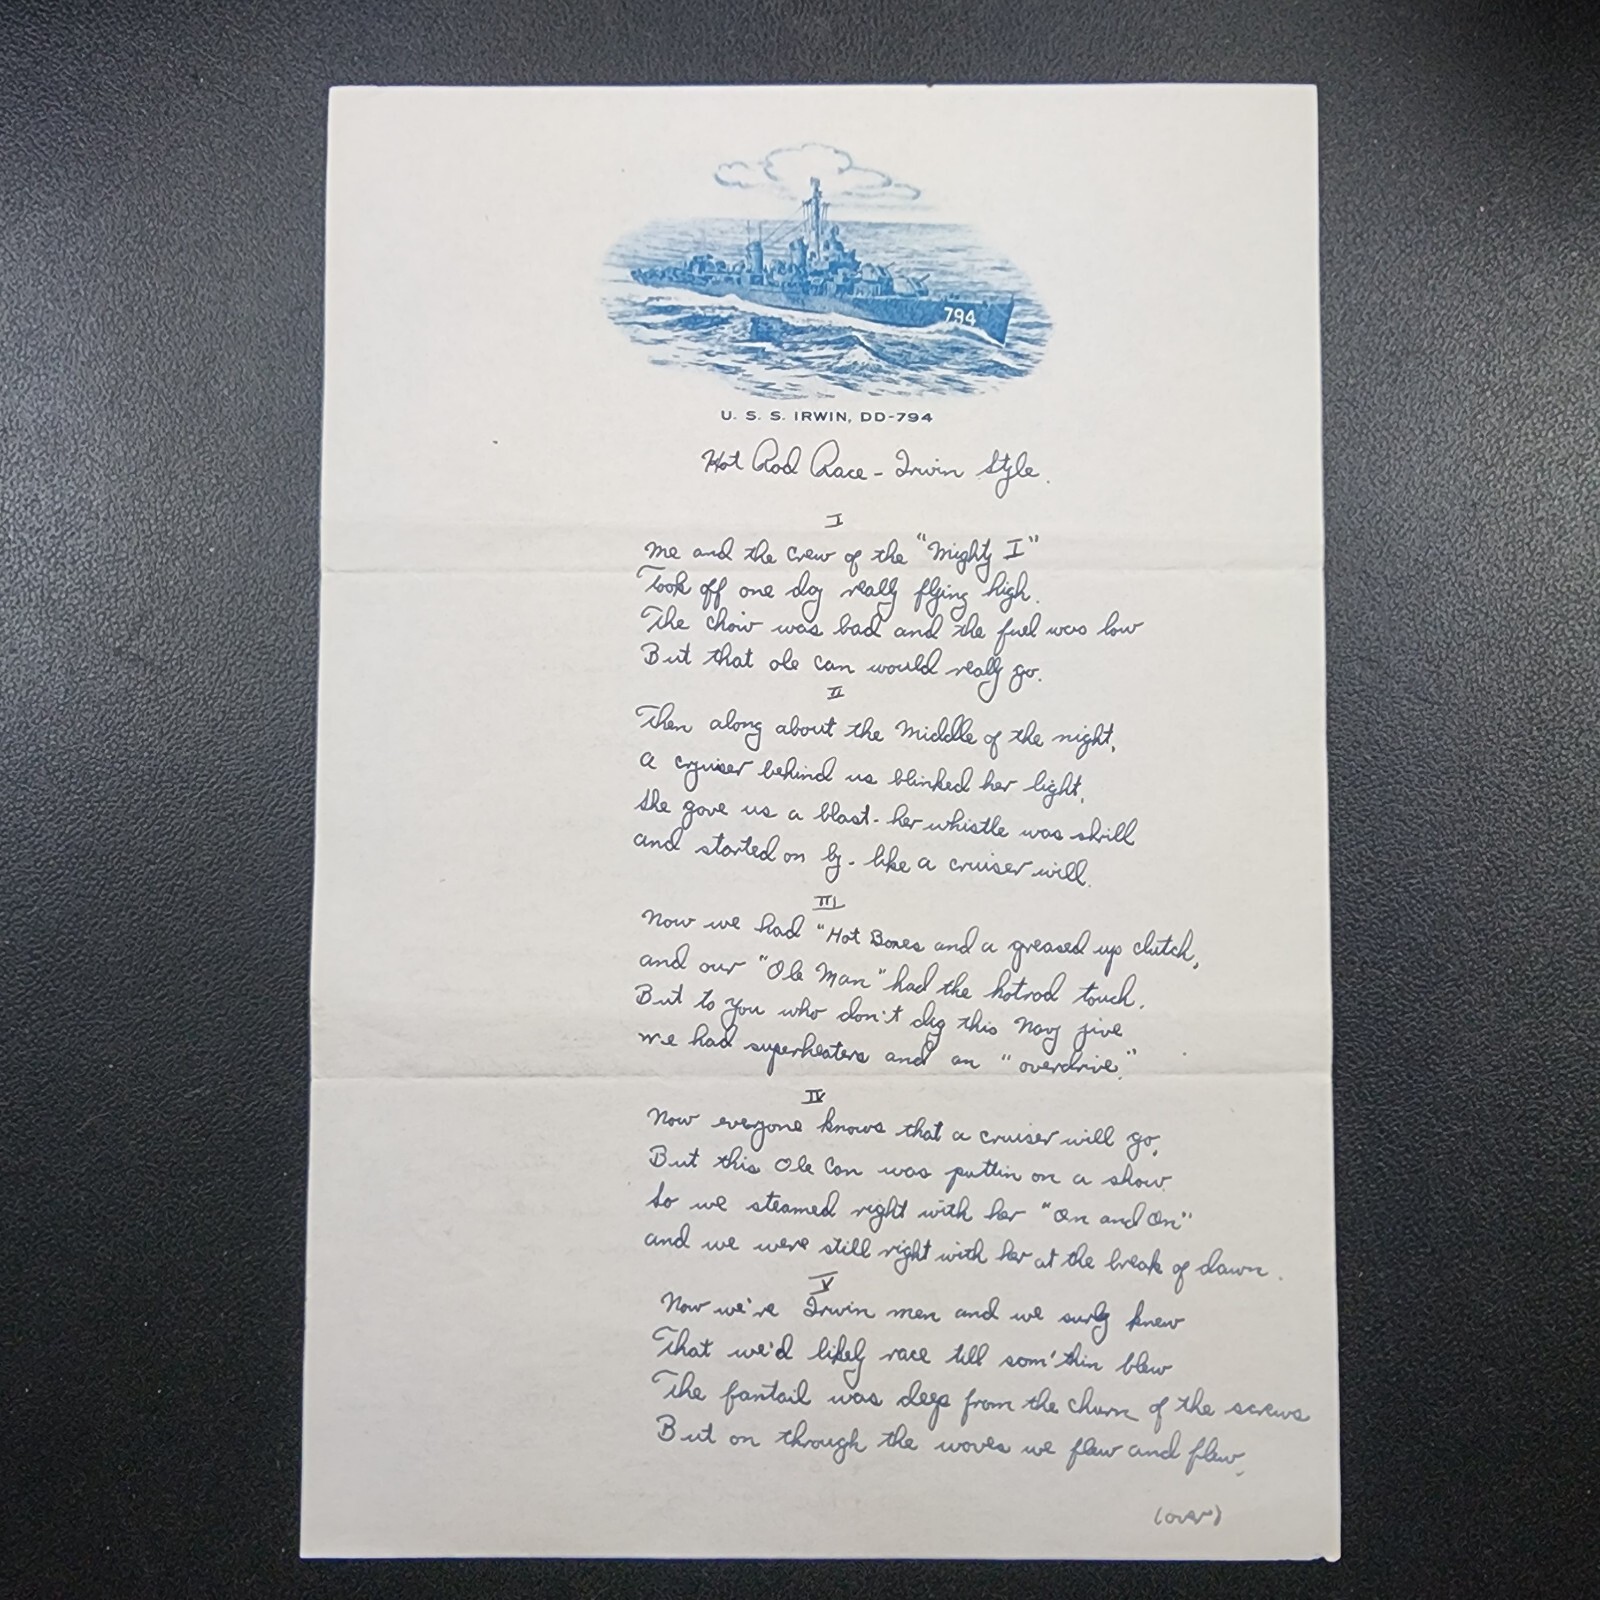 794
U. S. S. IRWIN, DD-794
Hot Rod Race - Irwin Style.
I
Me and the crew of the "Mighty I"
Took off one day really flying high.
The chow was bad and the fuel was low
But that ole can would really go.
II
Then along about the middle of the night,
a cruiser behind us blinked her light,
She gave us a blast - her whistle was shrill
and started on by - like a cruiser will.
III
Now we had "Hot Boxes and a greased up clutch,
and our "Ole Man" had the hotrod touch.
But to you who don't dig this Navy jive
we had superheaters and an "overdrive."
IV
Now everyone knows that a cruiser will go,
But this Ole Can was puttin on a show.
So we steamed right with her "On and On"
and we were still right with her at the break of dawn.
V
Now we're Irwin men and we surly knew
That we'd likely race till som'thin blew
The fantail was deep from the churn of the screws
But on through the waves we flew and flew,
(over)